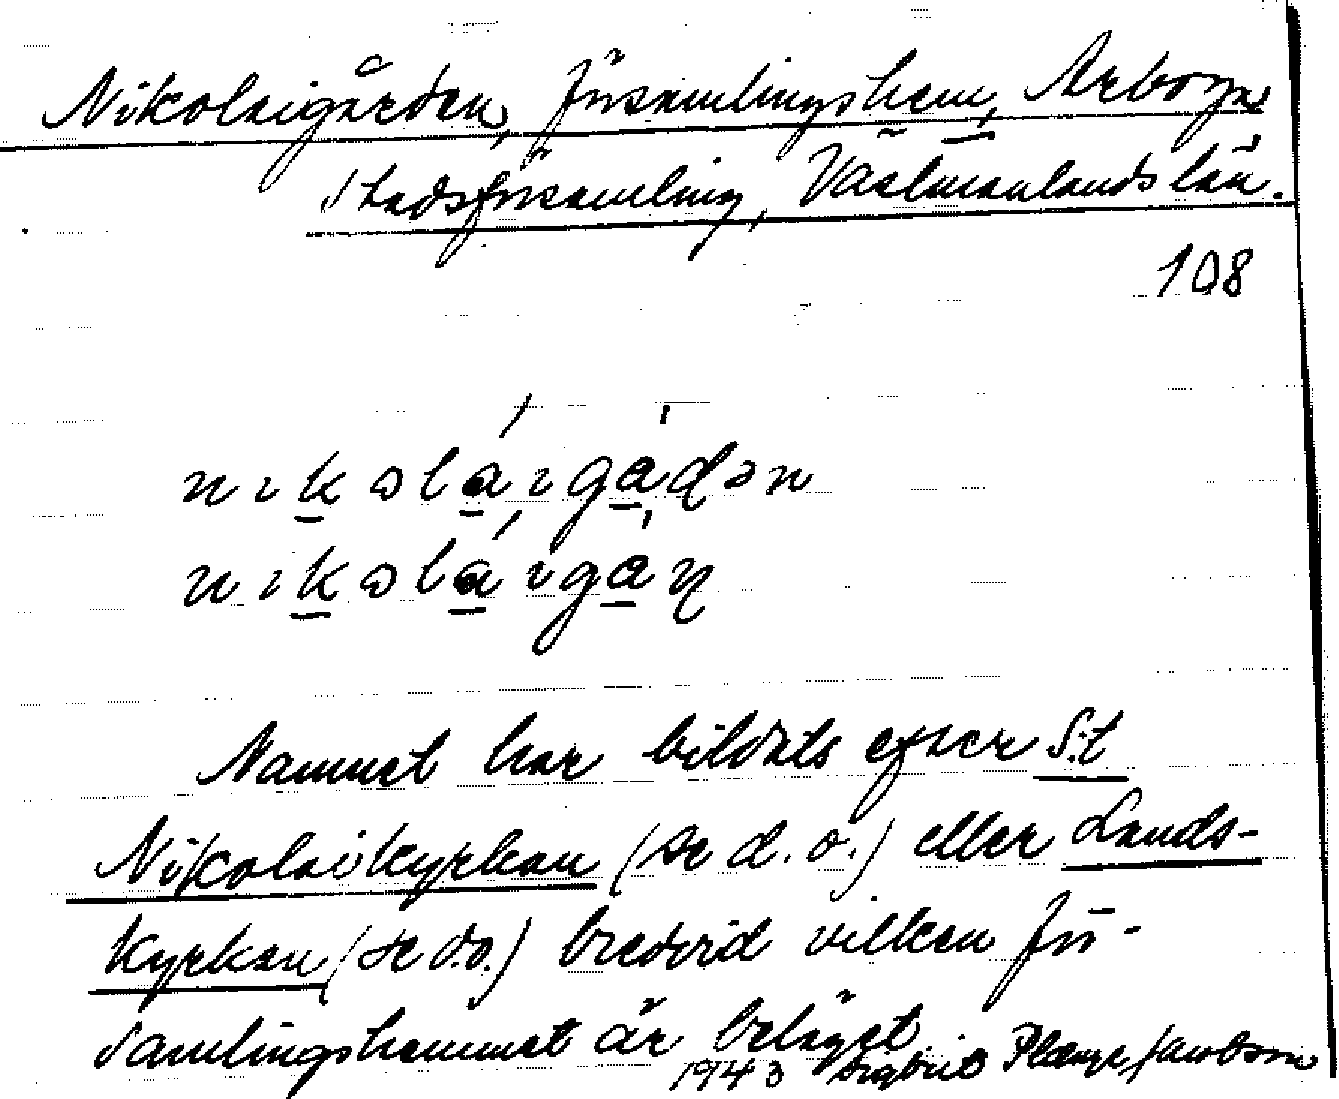 Nikolaigården, församlingshem, Arboga
stadsförsamling, Västmanlands län.
108
nıkωláıgáɖən
nıkωláıgáɳ
Namnet har bildats efter S:t
Nikolaikyrkan (se d.o.) eller Lands-
kyrkan (se d.o.) bredvid vilken för-
samlingshemmet är beläget.
1943 Sigbrit Plænge Jacobson